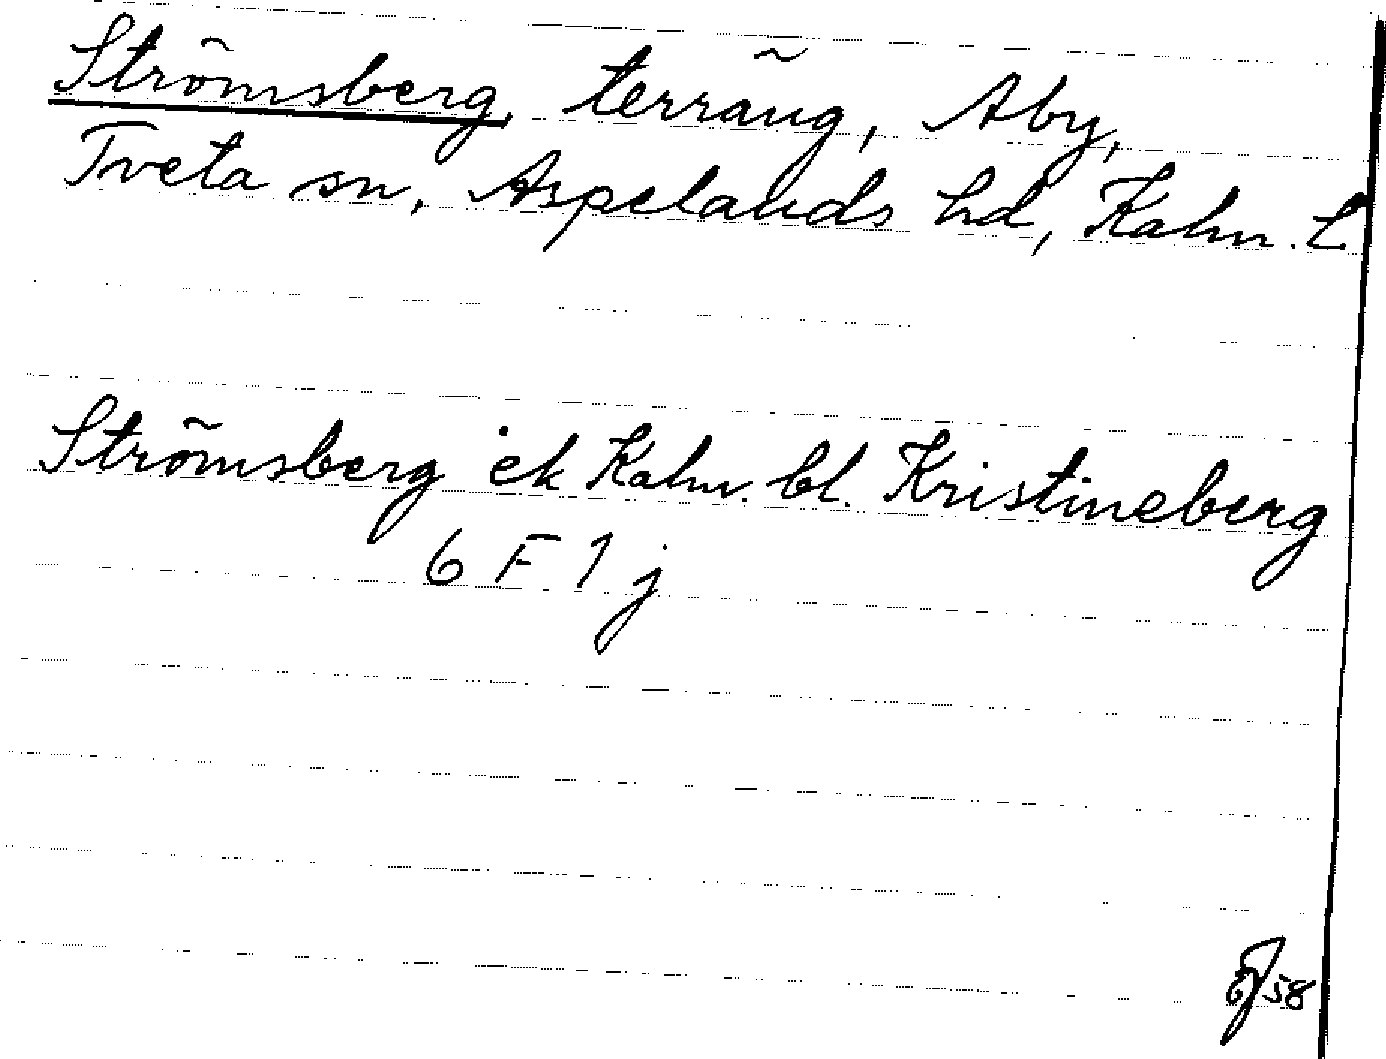 Strömsberg, terräng, Aby,
Tveta sn, Aspelands hd, Kalm. L
Strömsberg ek Kalm. bl. Kristineberg
6 F 1 j
58